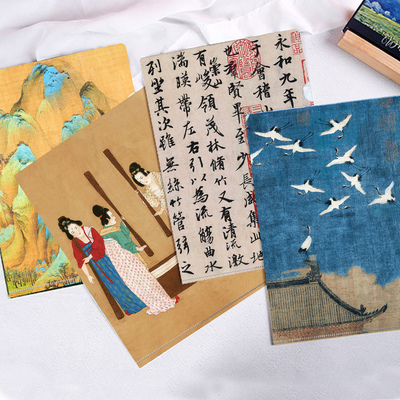 永和九年
于會稽山
也群賢畢至少長咸集此地
有崇山峻領茂林脩竹又有清流激
湍暎帶左右引以為流觴曲水
列坐其次雖無絲竹管弦之